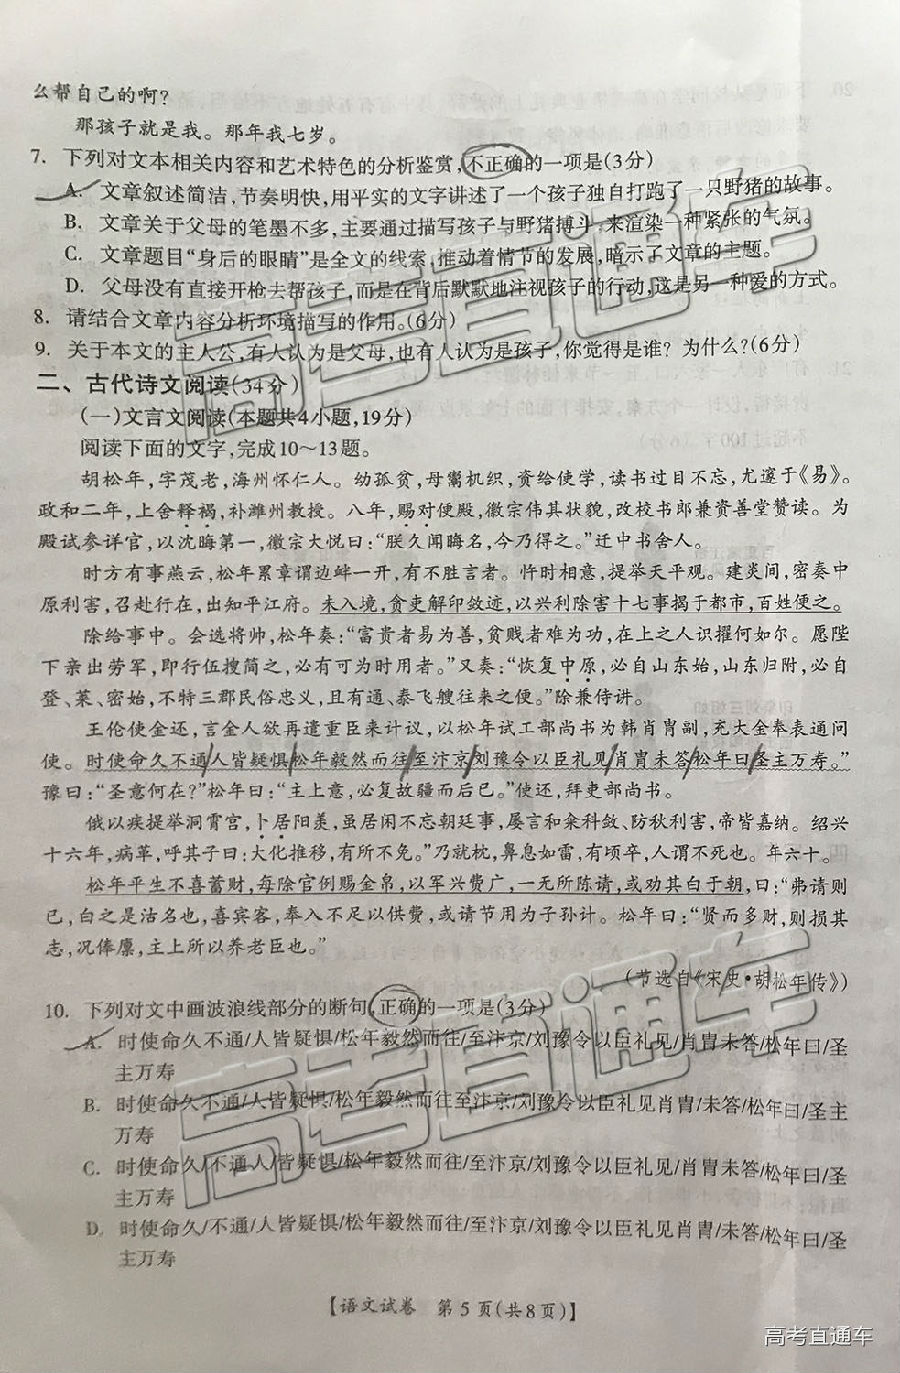 么帮自己的啊?
那孩子就是我。那年我七岁。
7. 下列对文本相关内容和艺术特色的分析鉴赏,不正确的一项是(3分)
A. 文章叙述简洁,节奏明快,用平实的文字讲述了一个孩子独自打跑了一只野猪的故事。
B. 文章关于父母的笔墨不多,主要通过描写孩子与野猪搏斗,来渲染一种紧张的气氛。
C. 文章题目“身后的眼睛”是全文的线索,推动着情节的发展,暗示了文章的主题。
D. 父母没有直接开枪去帮孩子,而是在背后默默地注视孩子的行动,这是另一种爱的方式。
8. 请结合文章内容分析环境描写的作用。(6分)
9. 关于本文的主人公,有人认为是父母,也有人认为是孩子,你觉得是谁? 为什么?(6分)
二、古代诗文阅读(34分)
(一)文言文阅读(本题共4小题,19分)
阅读下面的文字,完成10~13题。
胡松年,字茂老,海州怀仁人。幼孤贫,母鬻机织,资给使学,读书过目不忘,尤邃于《易》。
政和二年,上舍释褐,补潍州教授。八年,赐对便殿,徽宗伟其状貌,改校书郎兼资善堂赞读。为
殿试参详官,以沈晦第一,徽宗大悦曰:“朕久闻晦名,今乃得之。”迁中书舍人。
时方有事燕云,松年累章谓边衅一开,有不胜言者。忤时相意,提举天平观。建炎间,密奏中
原利害,召赴行在,出知平江府。未入境,贪吏解印敛迹,以兴利除害十七事揭于都市,百姓便之。
除给事中。会选将帅,松年奏:“富贵者易为善,贫贱者难为功,在上之人识擢何如尔。愿陛
下亲出劳军,即行伍搜简之,必有可为时用者。”又奏:“恢复中原,必自山东始,山东归附,必自
登、莱、密始,不特三郡民俗忠义,且有通、泰飞艘往来之便。”除兼侍讲。
王伦使金还,言金人欲再遣重臣来计议,以松年试工部尚书为韩肖胄副,充大金奉表通问
使。时使命久不通/人皆疑惧/松年毅然而往/至汴京/刘豫令以臣礼见/肖胄未答/松年曰/圣主万寿。”
豫曰:“圣意何在?”松年曰:“主上意,必复故疆而后已。”使还,拜吏部尚书。
俄以疾提举洞霄宫,卜居阳羡,虽居闲不忘朝廷事,屡言和籴科敛、防秋利害,帝皆嘉纳。绍兴
十六年,病革,呼其子曰:“大化推移,有所不免。”乃就枕,鼻息如雷,有顷卒,人谓不死也。年六十。
松年平生不喜蓄财,每除官例赐金帛,以军兴费广,一无所陈请,或劝其白于朝,曰:“弗请则
已,白之是沽名也,喜宾客,奉入不足以供费,或请节用为子孙计。松年曰:“贤而多财,则损其
志,况俸廪,主上所以养老臣也。”
(节选自《宋史·胡松年传》)
10. 下列对文中画波浪线部分的断句,正确的一项是(3分)
A. 时使命久不通/人皆疑惧/松年毅然而往/至汴京/刘豫令以臣礼见/肖胄未答/松年曰/圣
主万寿
B. 时使命久不通/人皆疑惧/松年毅然而往至汴京/刘豫令以臣礼见肖胄/未答/松年曰/圣主
万寿
C. 时使命久/不通人/皆疑惧/松年毅然而往/至汴京/刘豫令以臣礼见/肖胄未答/松年曰/圣
主万寿
D. 时使命久/不通/人皆疑惧/松年毅然而往/至汴京/刘豫令以臣礼见肖胄/未答/松年曰/圣
主万寿
【语文试卷 第5页(共8页)】
高考直通车
高考直通车
高考直通车